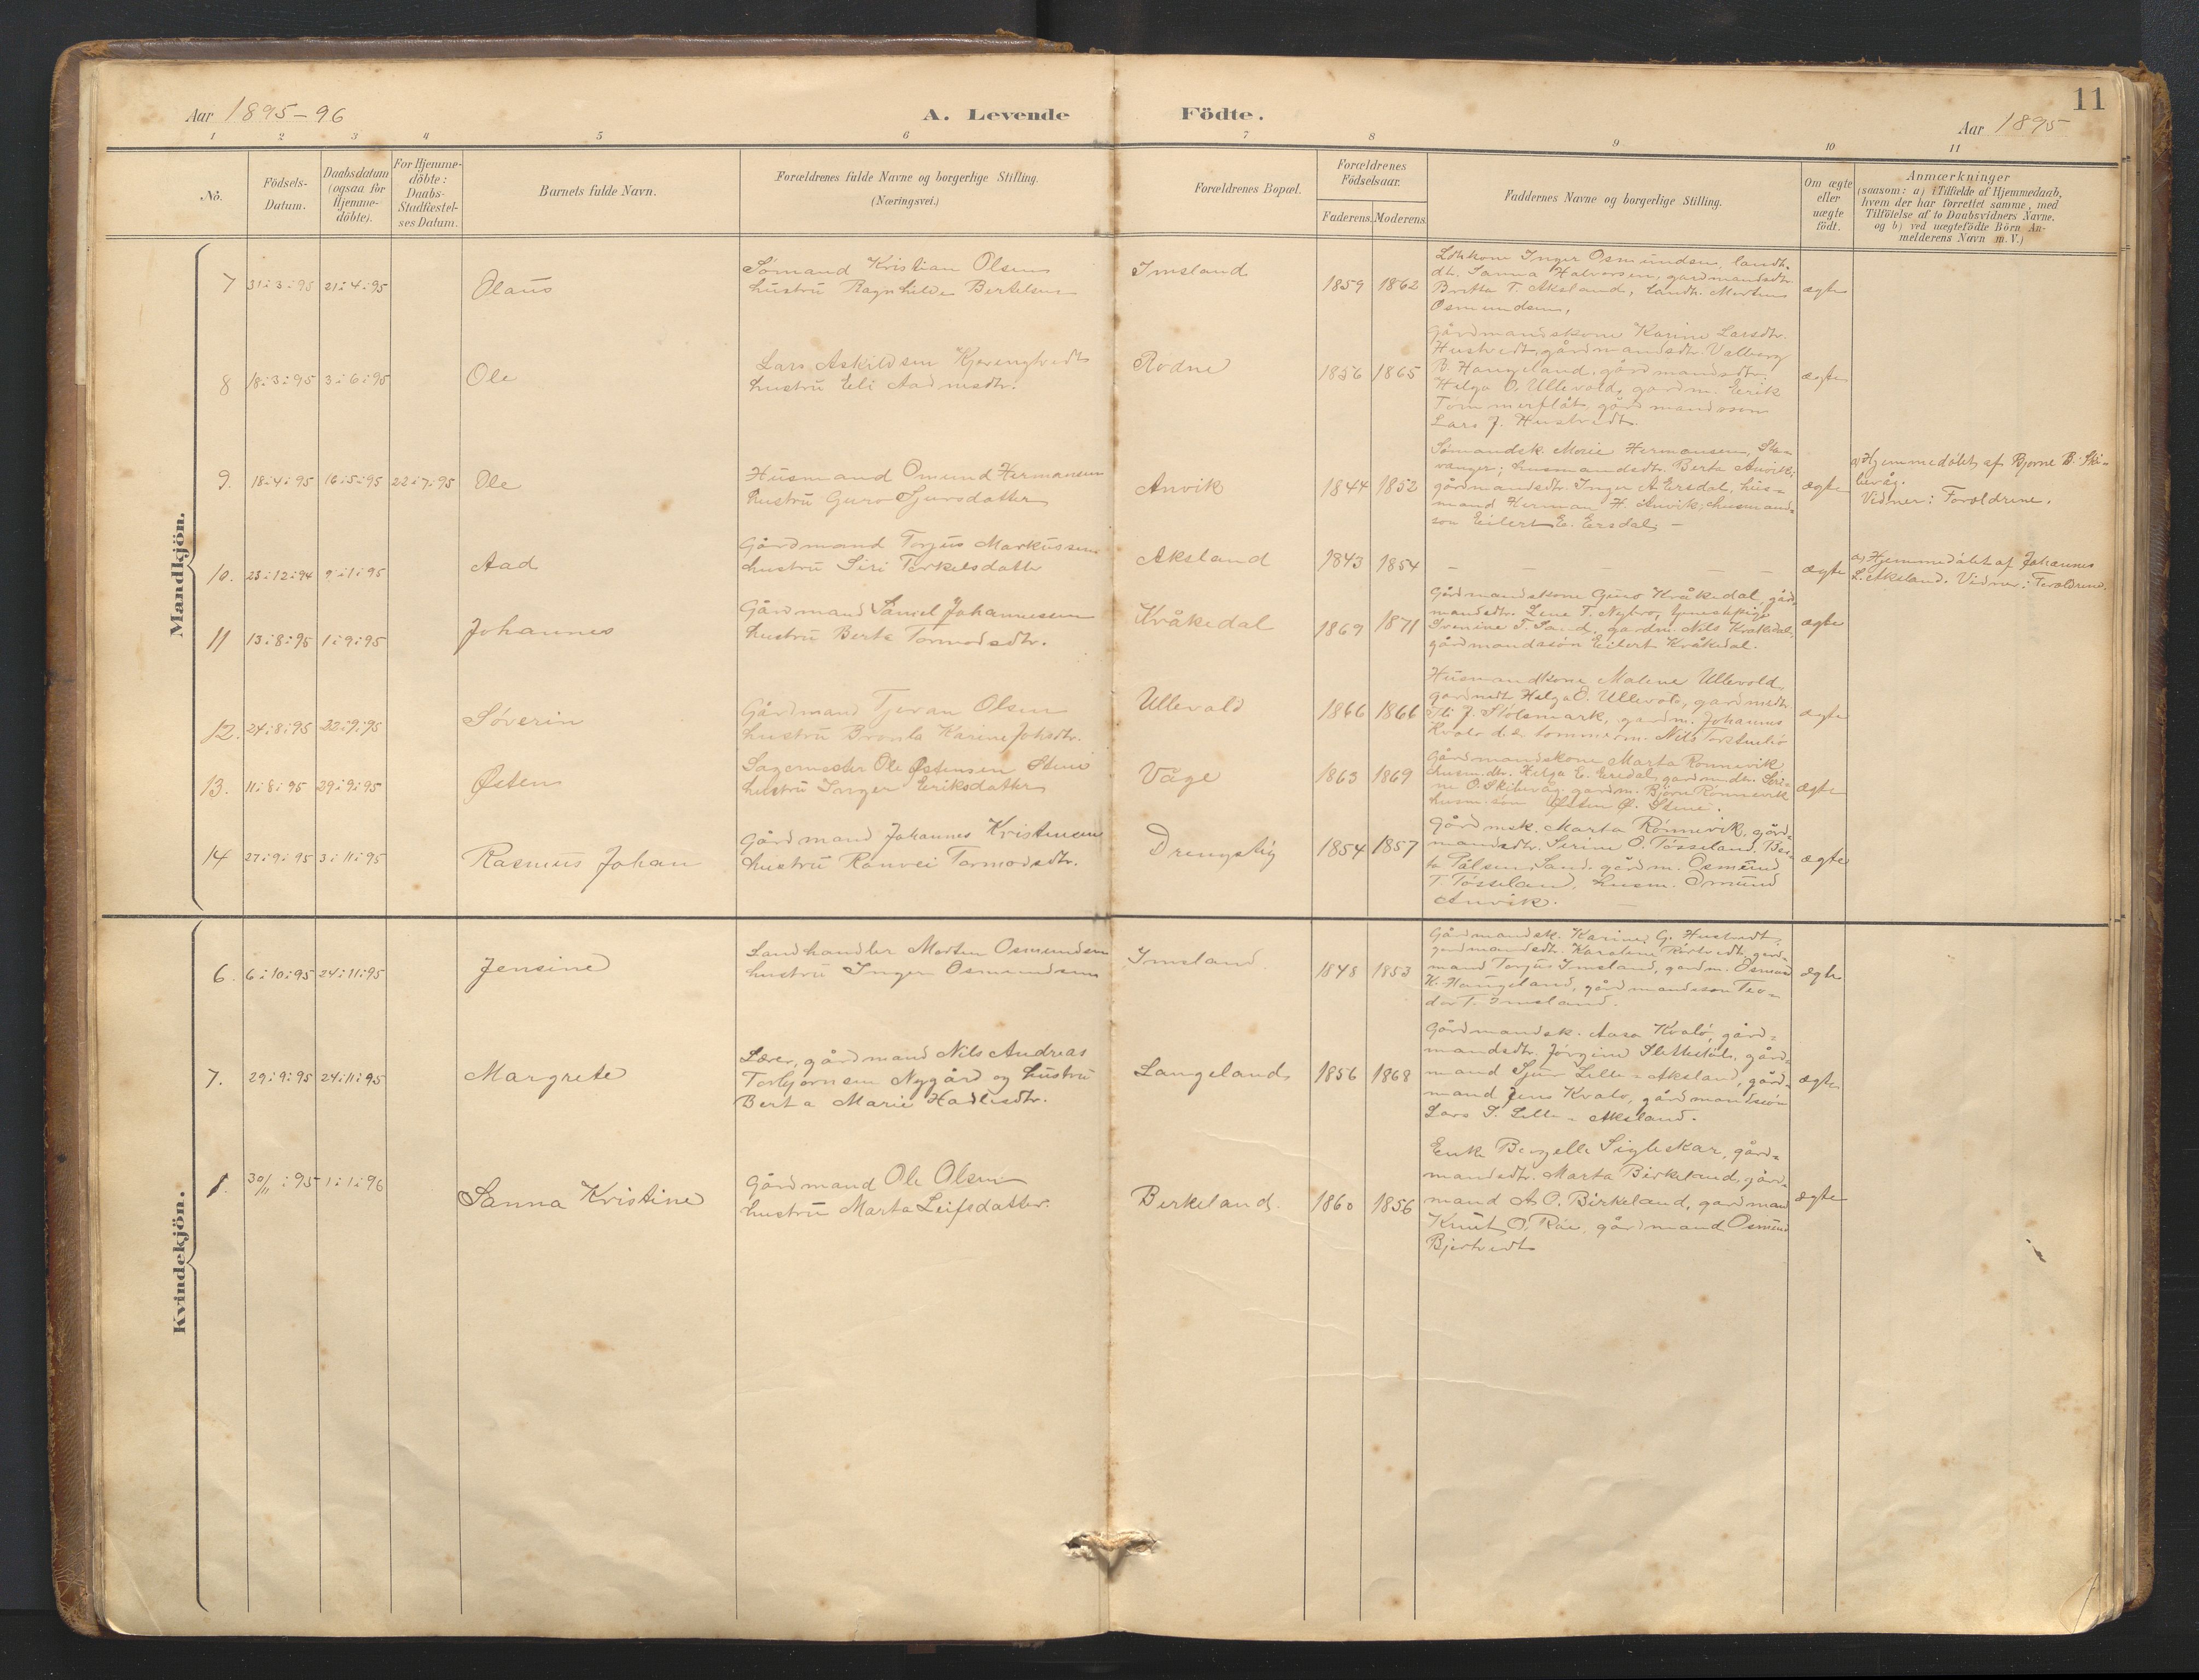 11
Aar 1895-96
A. Levende Födte.
Aar 1895
1 2 3 4 5 6 7 8 9 10 11
No.
Födsels-
Datum.
Daabsdatum
(ogsaa for
Hjemme-
döbte).
For Hjemme-
döbte:
Daabs-
Stadfæstel-
ses Datum.
Barnets fulde Navn.
Forældrenes fulde Navne og borgerlige Stilling.
(Næringsvei.)
Forældrenes Bopæl.
Forældrenes
Födselsaar.
Faderens. Moderens.
Faddernes Navne og borgerlige Stilling.
Om ægte
eller
uægte
födt.
Anmærkninger
(saasom: a) i Tilfælde af Hjemmedaab,
hvem der har forrettet samme, med
Tilföielse af to Daabsvidners Navne.
og b) ved uægtefödte Börn An-
melderens Navn m. V.)
Mandkjön.
7 31:3:95 21:4:95
Olaus
Sømand Kristian Olsen
hustru Ragnhilde Bertelsen
Imsland
1859 1862
Inger Osmundsen, landh.
dt. Sanna Halvorsen, gardmandsdtr.
Britta T. Aksland, landh. Morten
Osmundsen.
ægte
8 18:3:95 3:6:95
Ole
Lars Askildsen Kjerengtvedt
hustru Eli Aadnesdtr.
Rodne
1856 1865
Gårdmandskone Karine Larsdtr.
Hustvedt, gårdmandsdtr. Valborg
B. Haugeland, gårdmandsdtr.
Helga O. Ullevold, gardm. Eirik
Tømmerflåt, gårdmandssøn
Lars J. Hustvedt.
ægte
9. 18:4:95 16:5:95 22:7:95
Ole
Husmand Omund Hermansen
hustru Guro Sjursdatter
Anvik
1844 1852
Sømandsk. Marie Hermansen, Sta-
vanger; husmandsdt. Berta Anvik;
gårdmandsdt. Inger A Ersdal, hus-
mand Herman H. Anvik, husmand-
søn Eilert E. Ersdal. -
ægte
a) Hjemmedøbt af Bjørne B. Ski-
bevåg.
Vidner: Forældrene.
10. 23:12:94 9:1:95
Aad
Gårdmand Torjus Markussen
hustru Siri Torkelsdatter
Aksland
1843 1854
- - - - -
ægte
a) Hjemmedøbt af Johannes
L. Aksland. Vidner: Forældrene.
11 13:8:95 1:9:95
Johannes
Gårdmand Samuel Johannessen
hustru Berta Tormodsdtr.
Kråkedal
1869 1871
Gårdmandskone Guro Kråkedal, gård-
mandsdtr. Lene T. Nybro, tjenestpige
T. Sand, gardm. Nils Kråkedal,
gårdmandssøn Eilert Kråkedal.
ægte
12. 24:8:95 22:9:95
Søverin
Gårdmand Tjeran Olsen
hustru Karine Johsdtr.
Ullevold
1866 1866
Husmandkone Malene Ullevold,
gardmdt Helga O. Ullevold, gardmdt.
J. Stolsmark, gardm. Johannes
Kvalo Nils
ægte
13. 11:8:95 29:9:95
Østen
Sagemester Ole Østensen Stene
hustru Inger Eriksdatter
Våge
1863 1869
Gårdmandskone Marta Rønnevik,
husm.dtr. Helga E. Ersdal, gardm.dtr. Seri-
ne O. Skibevåg, gardm. Bjørn Rønnevik
husm. søn Østen Ø. Stene.
ægte
14 27:9:95 3:11:95
Rasmus Johan
Gårdmand Johannes Kristensen
hustru Ranvei Tormodsdtr.
Drengstig
1854 1857
Gårdmsk. Marta Rønnevik, gård-
mandsdtr. Serine O. Tøsseland, Ber-
ta Pålsen, Sand, gårdm. Osmund
T. Tøsseland, husm. Omund
Anvik. -
ægte
Kvindekjön.
6. 6:10:95 24:11:95
Jensine
Landhandler Morten Osmundsen
hustru Inger Osmundsen
Imsland
1848 1853
Gårdmandsk. Karine G. Hustvedt,
gardmandsdt. Karoline gård-
mand Torjus Imsland, gardm. Osmund
K. Haugeland, gårdmandssøn Teo-
dor T. Imsland.
ægte
7. 29:9:95 24:11:95
Margrete
Lærer, gårdmand Nils Andreas
Torbjørnsen Nygård og hustru
Berta Marie Hadlesdtr.
Langeland
1856 1868
Gårdmandsk. Aasa Kvalo, gård-
mandsdtr. Jorgine gård-
mand Sjur Lille-Aksland, gård-
mand Jens Kvalo, gårdmandssøn
Lars S. Lille-Aksland.
ægte
1. 30/11:95 1:1:96
Sanna Kristine
Gårdmand Ole Olsen
hustru Marta Leifsdatter.
Birkeland.
1860 1856
Enke Sigleskar, gård-
mandsdt. Marta Birkeland, gård-
mand A O. Birkeland, gardmand
Knut O. gårdmand Osmund
Bjertvedt
ægte